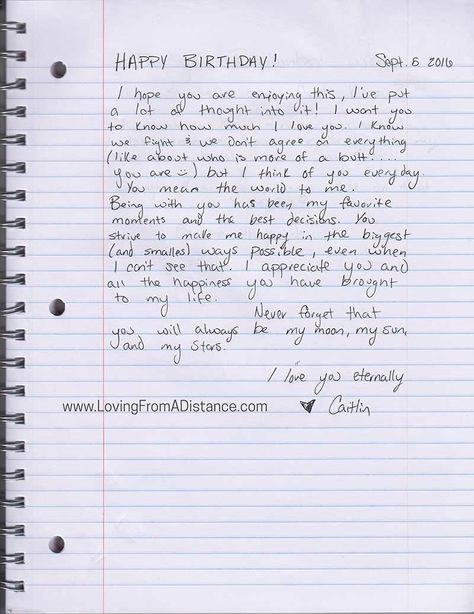 HAPPY BIRTHDAY! Sept. 5 2016
I hope you are enjoying this, I've put
a lot of thought into it! I want you
to know how much I love you. I know
we fight & we don't agree on everything
(like about who is more of a butt.....
you are :) but I think of you everyday.
You mean the world to me.
Being with you has been my favorite
moments and the best decisions. You
strive to make me happy in the biggest
(and smalles) ways possible, even when
I can't see that. I appreciate you and
all the happiness you have brought
to my life.
Never forget that
you will always be my moon, my sun,
and my stars.
I love you eternally
www.LovingFromADistance.com ♥ Caitlin